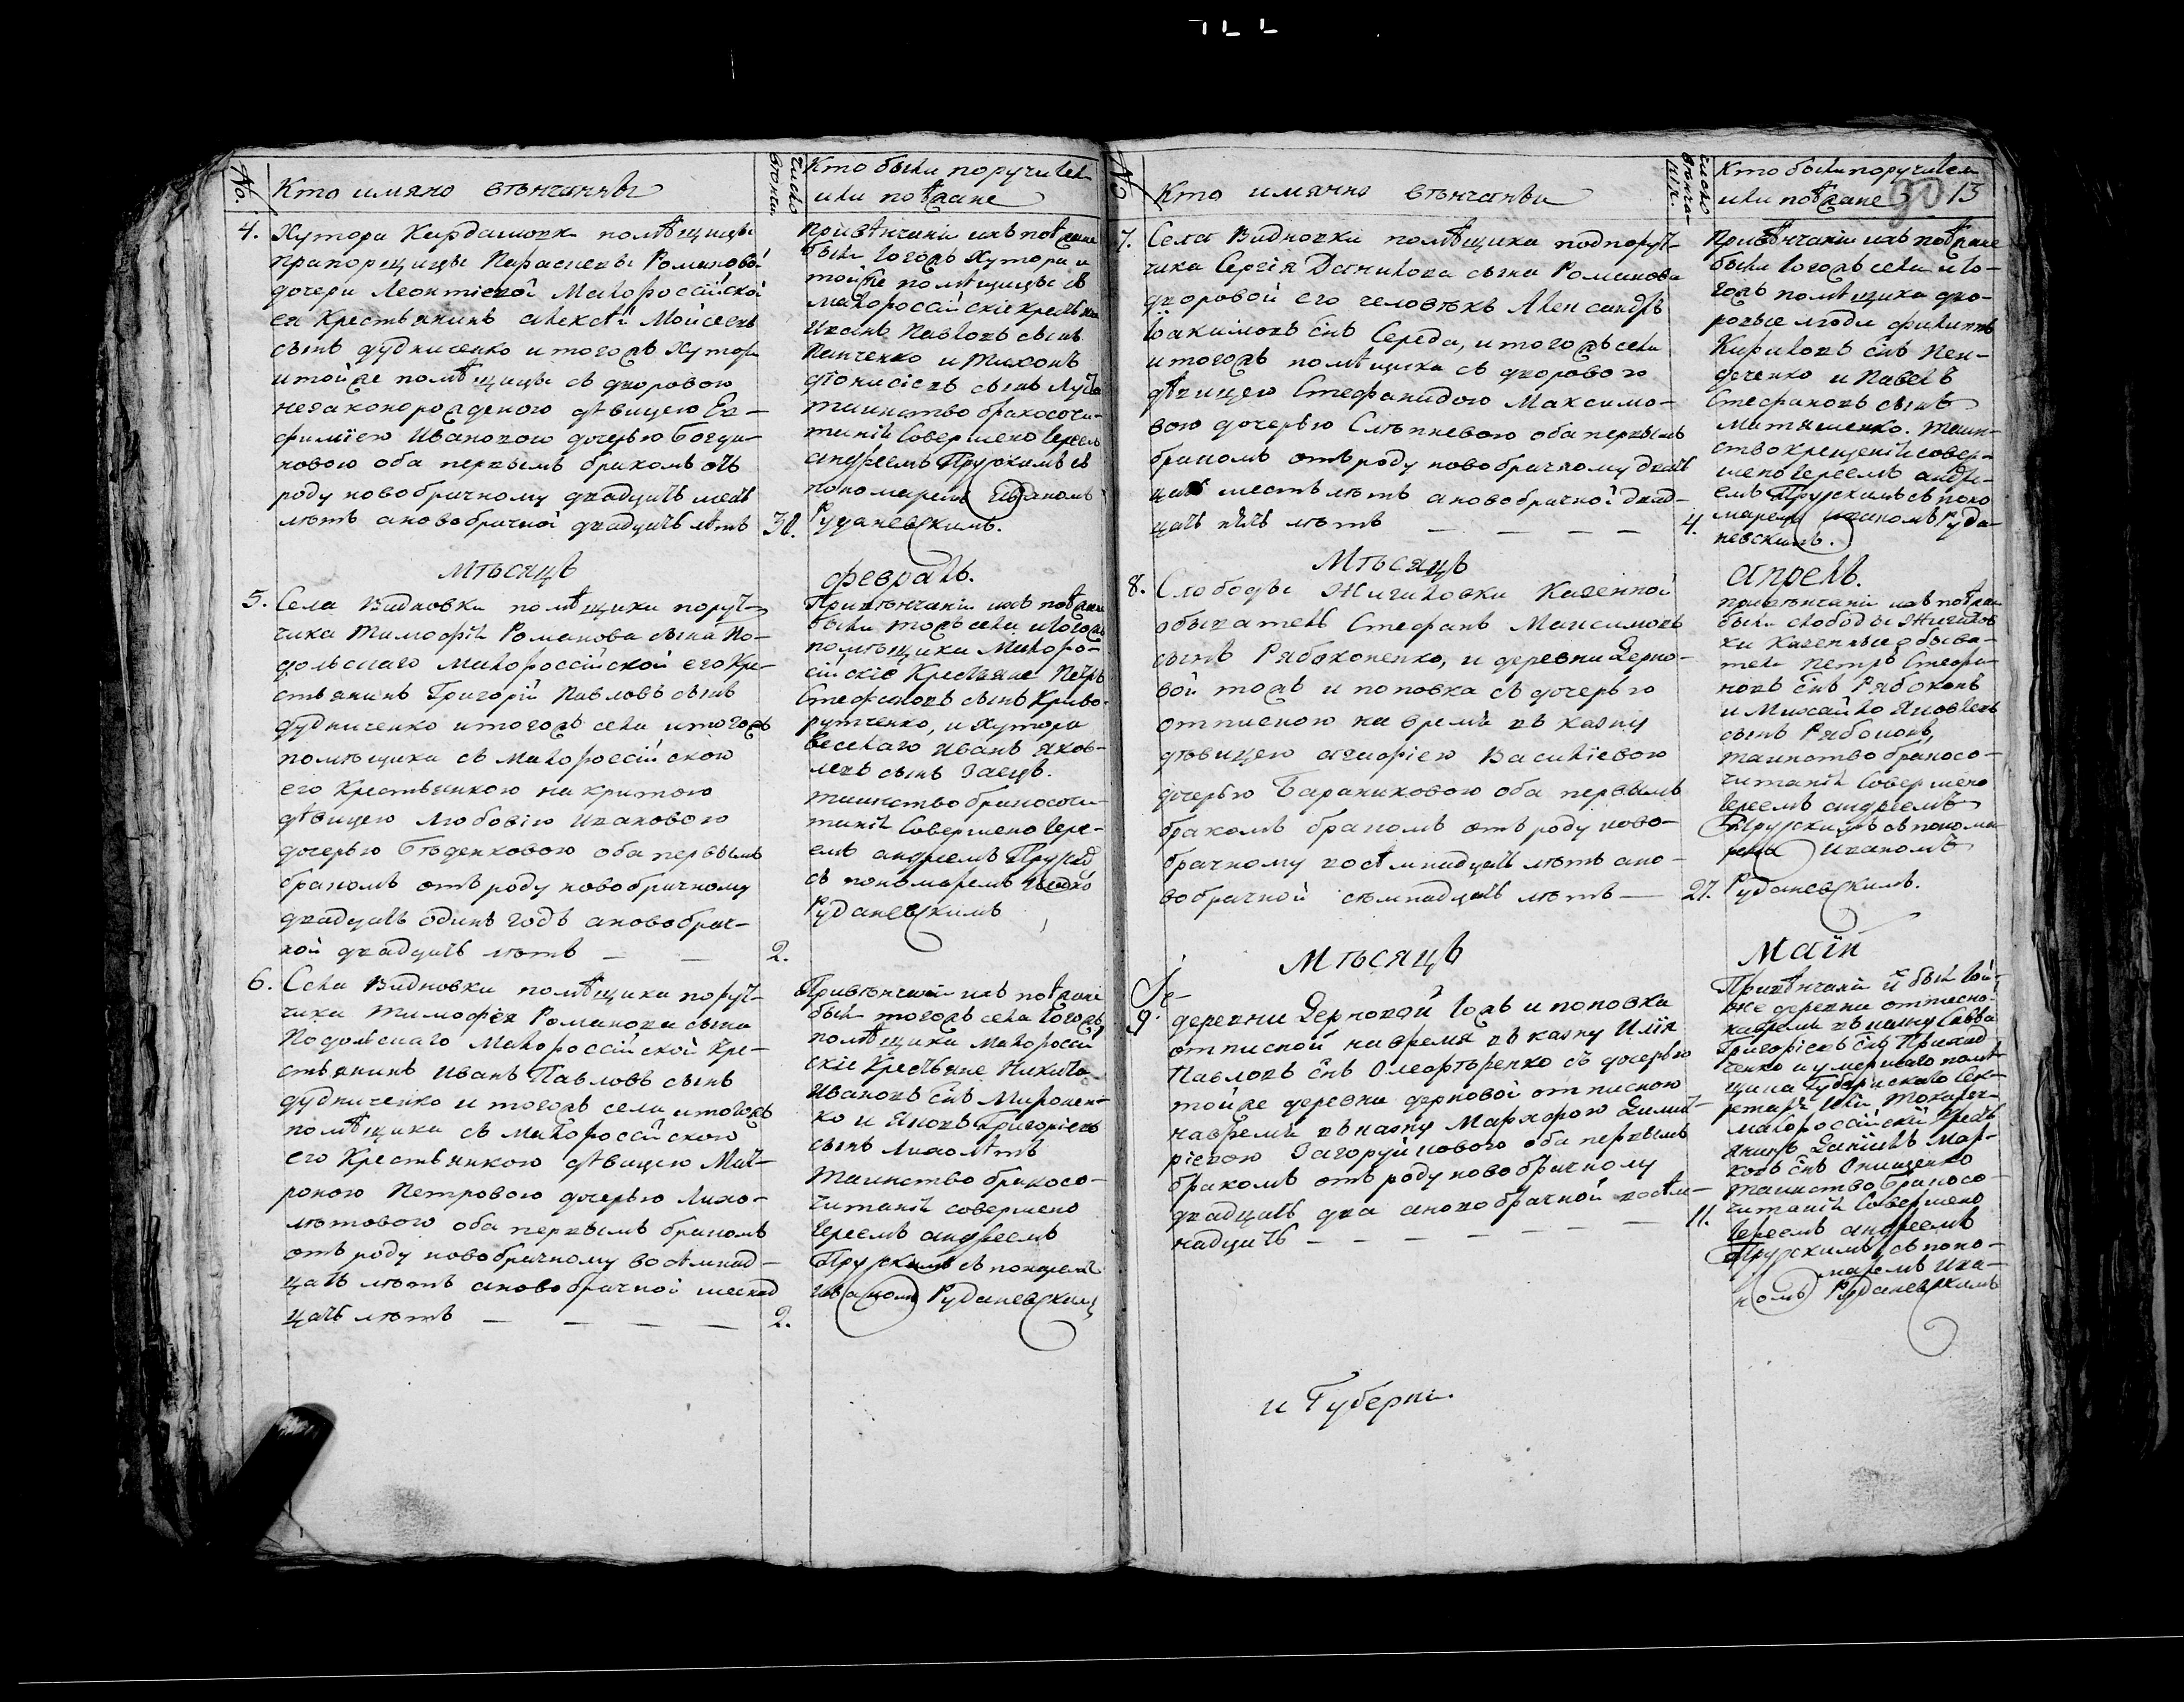 No.
Кто имяно вѣнчанны
число
Кто были поручител
или поѣзжане
4. Хутора Кардашовк помѣщицы
прапорщицы Параскевы Романовой
дочери Леонтіевой Малороссійской
ея Крестьянинъ алексѣй Моисѣевъ
сынъ дудниченко и тогожъ хутора
и тойже помѣщицы съ дворовою
незаконорожденою дѣвицею Ев-
фиміею Ивановою дочерью богда-
новою оба первымъ бракомъ отъ
роду новобрачному двадцать шесть
лѣтъ а новобрачной двадцать лѣтъ
30.
При вѣнчаніи ихъ поѣзжане
были тогожъ Хутора и
тойже помѣщицы съ
малороссійскіе крестьяне
Иванъ Павловъ сынъ
Панченко и Тихонъ
діонисіевъ сынъ
таинство бракосоче-
танія Совершено Іереемъ
андреемъ Прускимъ съ
пономаремъ Іваномъ
Руданевскимъ.
Мѣсяцъ
февраль.
5. Села Видновки помѣщика поруч-
чика Тимофѣя Романова сына По-
дольскаго Малороссійской его Кре-
стьянинъ Григорій Павловъ сынъ
дудниченко и тогожъ села и тогожъ
помѣщика съ малороссійскою
его Крестьянкою накритою
дѣвицею Любовію Ивановою
дочерью Бѣденковою оба первымъ
бракомъ отъ роду новобрачному
двадцать одинъ годъ а новобрач-
ной двадцать лѣтъ
2.
При вѣнчаніи ихъ поѣзжане
были тогожъ села и тогожъ
помѣщика Малоро-
сійскіе Крестьяне Петръ
Стефановъ сынъ Криво-
рутченко, и хутора
Веселаго Иванъ Яков-
левъ сынъ Заецъ.
таинство бракосоче-
танія Совершено Іере-
емъ андреемъ
съ пономаремъ
Руданевскимъ
6. Села Видновки помѣщика поруч-
чика Тимофѣя Романова сына
Подольскаго Малороссійской Кре-
стьянинъ Иванъ Павловъ сынъ
дудниченко и тогожъ села и тогожъ
помѣщика съ малороссійскою
его Крестьянкою дѣвицею Мат-
роною Петровою дочерью Лихо-
лѣтовою оба первымъ бракомъ
отъ роду новобрачному восѣмнад-
цать лѣтъ а новобрачной шеснад
цать лѣтъ
2.
При вѣнчаніи ихъ поѣзжане
были тогожъ села тогожъ
помѣщика малоросси
скіе Крестьяне Никита
Ивановъ снъ Миронен-
ко и Яковъ Григоріевъ
сынъ Лихолѣтъ
Таинство бракосо-
читанія совершено
Іереемъ андреемъ
Прускимъ съ пономаремъ
Іваномъ Руданевскимъ
№
Кто имянно вѣнчанъ
число вѣнча-
нія.
Кто были поручител
или поѣзжане
90 13
7. Села Видновки помѣщика подпоруч-
чика Сергія Данилова сына Романова
дворовой его человѣкъ Александръ
Іоакимовъ снъ Середа, и тогожъ села
и тогожъ помѣщика съ дворовою
дѣвицею Стефанидою Максимо-
вою дочерью Слѣпневою оба первымъ
бракомъ отъ роду новобрачному двад
цать шесть лѣтъ а новобрачной двад-
цать пять лѣтъ
4.
При вѣнчаніи ихъ поѣзжане
были тогожъ села и то-
гожъ помѣщика дво-
ровые люди филиппъ
Кириловъ снъ Пен-
деченко и Павелъ
Стефановъ сынъ
Матяшенко. таин-
ство крещенія совер-
шено Іереемъ андре-
емъ Прускимъ съ поно
маремъ Иваномъ Руда-
невскимъ.
Мѣсяцъ
апрель.
8. Слободы Жигиловки Казенной
обыватель Стефанъ Максимовъ
сынъ Рябоконенко, и деревни Дерно-
вой тожъ и поповка съ дочерью
отписною на время въ казну
дѣвицею агафіею Василіевою
дочерью Баранниковою оба первымъ
бракомъ бракомъ отъ роду ново-
брачному восѣмнадцать лѣтъ а но-
вобрачной сѣмнадцать лѣтъ
27.
при вѣнчаніи ихъ поѣзжан
были слободы Жигилов
ки Казенные обыва-
тели Петръ Стефа-
новъ снъ Рябоконь
и Михайло Яковлевъ
сынъ Рябоконь,
таинство бракосо-
читанія Совершено
Іереемъ андреемъ
Прускимъ съ понома
ремъ Иваномъ
Руданевскимъ.
Мѣсяцъ
Маія
9. деревни Дерновой тожъ и поповка
отписной на время въ казну Илія
Павловъ снъ Олефѣренко съ дочерью
тойже деревни дерновой отписною
на время въ казну Марфою Дмит-
ріевою Загоруйковою оба первымъ
бракомъ отъ роду новобрачному
двадцать два а новобрачной восѣм-
надцать
11.
При вѣнчаніи были той-
же деревни отписно-
на время въ казну Савва
Григоріевъ снъ
ченко и умершаго помѣ-
щика Губернскаго Сек-
ретаря
малороссійскій Крест
янинъ Даніилъ Мар-
ковъ снъ Онищенко
таинство бракосо-
читанія Совершено
Іереемъ андреемъ
Прускимъ съ поно-
маремъ Ива-
номъ Руданевскимъ
и Губерни.